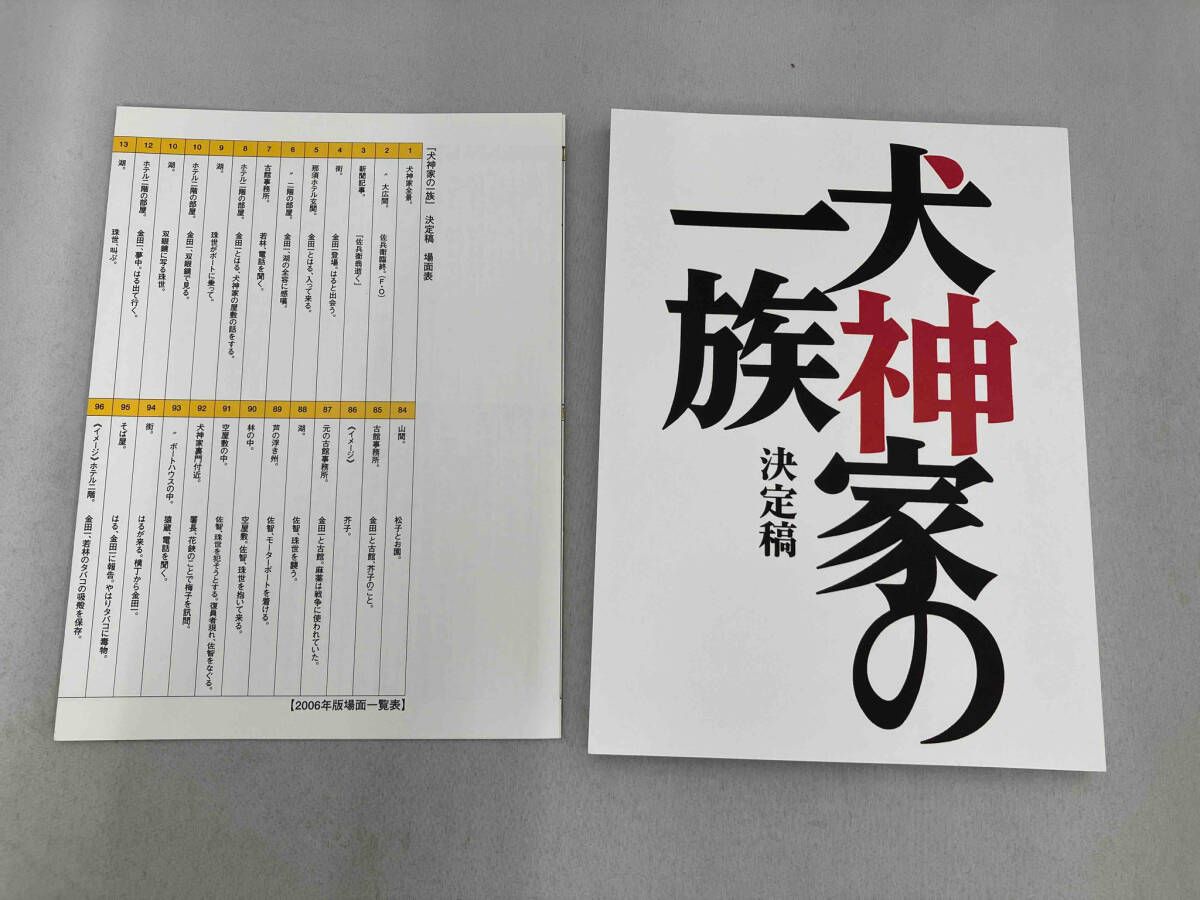 『犬神家の一族』 決定稿 場面表
1 犬神家全景。
2 〃 大広間。 佐兵衛臨終。(F・O)
3 新聞記事。 「佐兵衛翁逝く」
4 街。 金田一登場。はると出会う。
5 那須ホテル玄関。 金田一とはる、入って来る。
6 〃 二階の部屋。 金田一、湖の全容に感嘆。
7 古館事務所。 若林、電話を聞く。
8 ホテル二階の部屋。 金田一とはる、犬神家の屋敷の話をする。
9 湖。 珠世がボートに乗って。
10 ホテル二階の部屋。 金田一、双眼鏡で見る。
10 湖。 双眼鏡に写る珠世。
12 ホテル二階の部屋。 金田一、夢中。はる出て行く。
13 湖。 珠世、叫ぶ。
84 山間。 松子とお園。
85 古館事務所。 金田一と古館。芥子のこと。
86 《イメージ》 芥子。
87 元の古館事務所。 金田一と古館。麻薬は戦争に使われていた。
88 湖。 佐智、珠世を襲う。
89 芦の浮き州。 佐智、モーターボートを着ける。
90 林の中。 空屋敷。佐智、珠世を抱いて来る。
91 空屋敷の中。 佐智、珠世を犯そうとする。復員者現れ、佐智をなぐる。
92 犬神家裏門付近。 署長、花鋏のことで梅子を訊問。
93 〃 ボートハウスの中。 猿蔵、電話を聞く。
94 街。 はるが来る。横丁から金田一。
95 そば屋。 はる、金田一に報告。やはりタバコに毒物。
96 《イメージ》ホテル二階。 金田一、若林のタバコの吸殻を保存。
【2006年版場面一覧表】
犬神家の
一族
決定稿